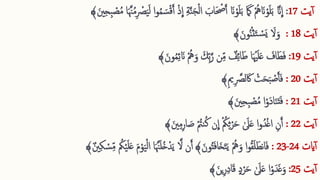 آیت 17: إِنَّا بَلَوْنَاهُمْ كَمَا بَلَوْنَا أَصْحَابَ الْجَنَّةِ إِذْ أَقْسَمُوا لَيَصْرِمُنَّهَا مُصْبِحِينَ﴾
آیت 18 : وَلَا يَسْتَثْنُونَ﴾
آیت 19: فَطَافَ عَلَيْهَا طَائِفٌ مِّن رَّبِّكَ وَهُمْ نَائِمُونَ﴾
آیت 20 : فَأَصْبَحَتْ كَالصَّرِيمِ﴾
آیت 21 : فَتَنَادَوْا مُصْبِحِينَ﴾
آیت 22 : أَنِ اغْدُوا عَلَىٰ حَرْثِكُمْ إِن كُنتُمْ صَارِمِينَ﴾
آیات 24-23 : فَانطَلَقُوا وَهُمْ يَتَخَافَتُونَ﴾ أَن لَّا يَدْخُلَنَّهَا الْيَوْمَ عَلَيْكُم مِّسْكِينٌ﴾
آیت 25: وَغَدَوْا عَلَىٰ حَرْدٍ قَادِرِينَ﴾